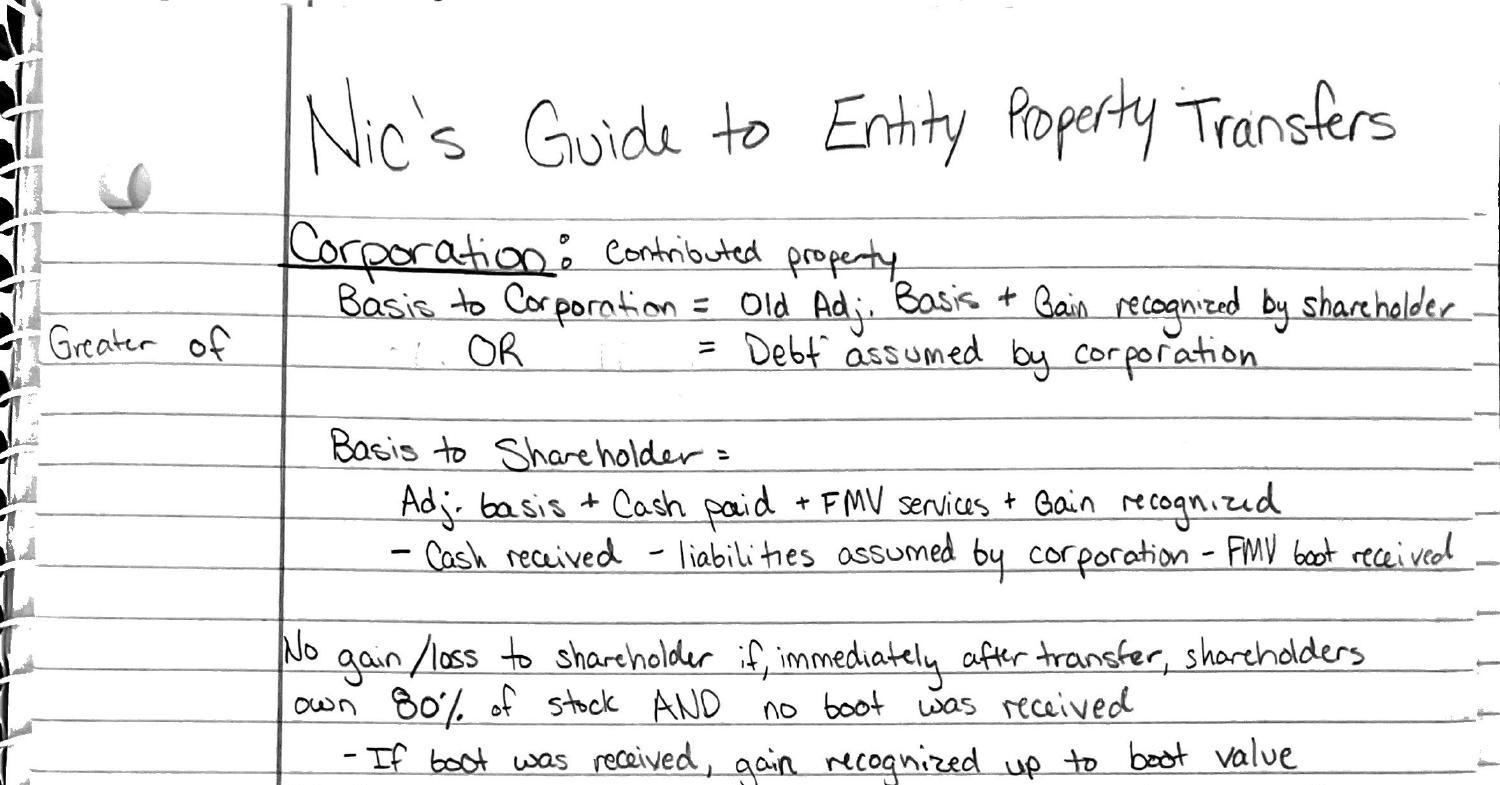 Nic's Guide to Entity Property Transfers
Corporation: Contributed property
Basis to Corporation = Old Adj. Basis + Gain recognized by shareholder
Greater of OR = Debt assumed by corporation
Basis to Shareholder =
Adj. basis + Cash paid + FMV services + Gain recognized
- Cash received - liabilities assumed by corporation - FMV boot received
No gain/loss to shareholder if, immediately after transfer, shareholders
own 80% of stock AND no boot was received
- If boot was received, gain recognized up to boot value